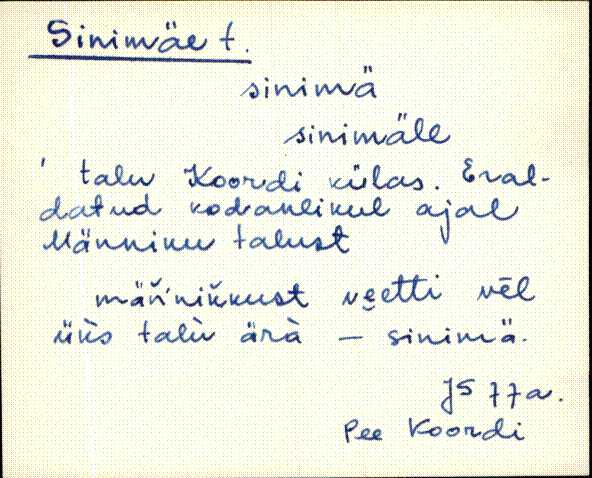 Sinimäe t.
sinimä
sinimälle
' talu Koordi külas. Eral-
datud kodanlikul ajal
Männiku talust
männikkust veetti vēl
üks talu ärà – sinimä.
JS 77a.
Pee Koordi